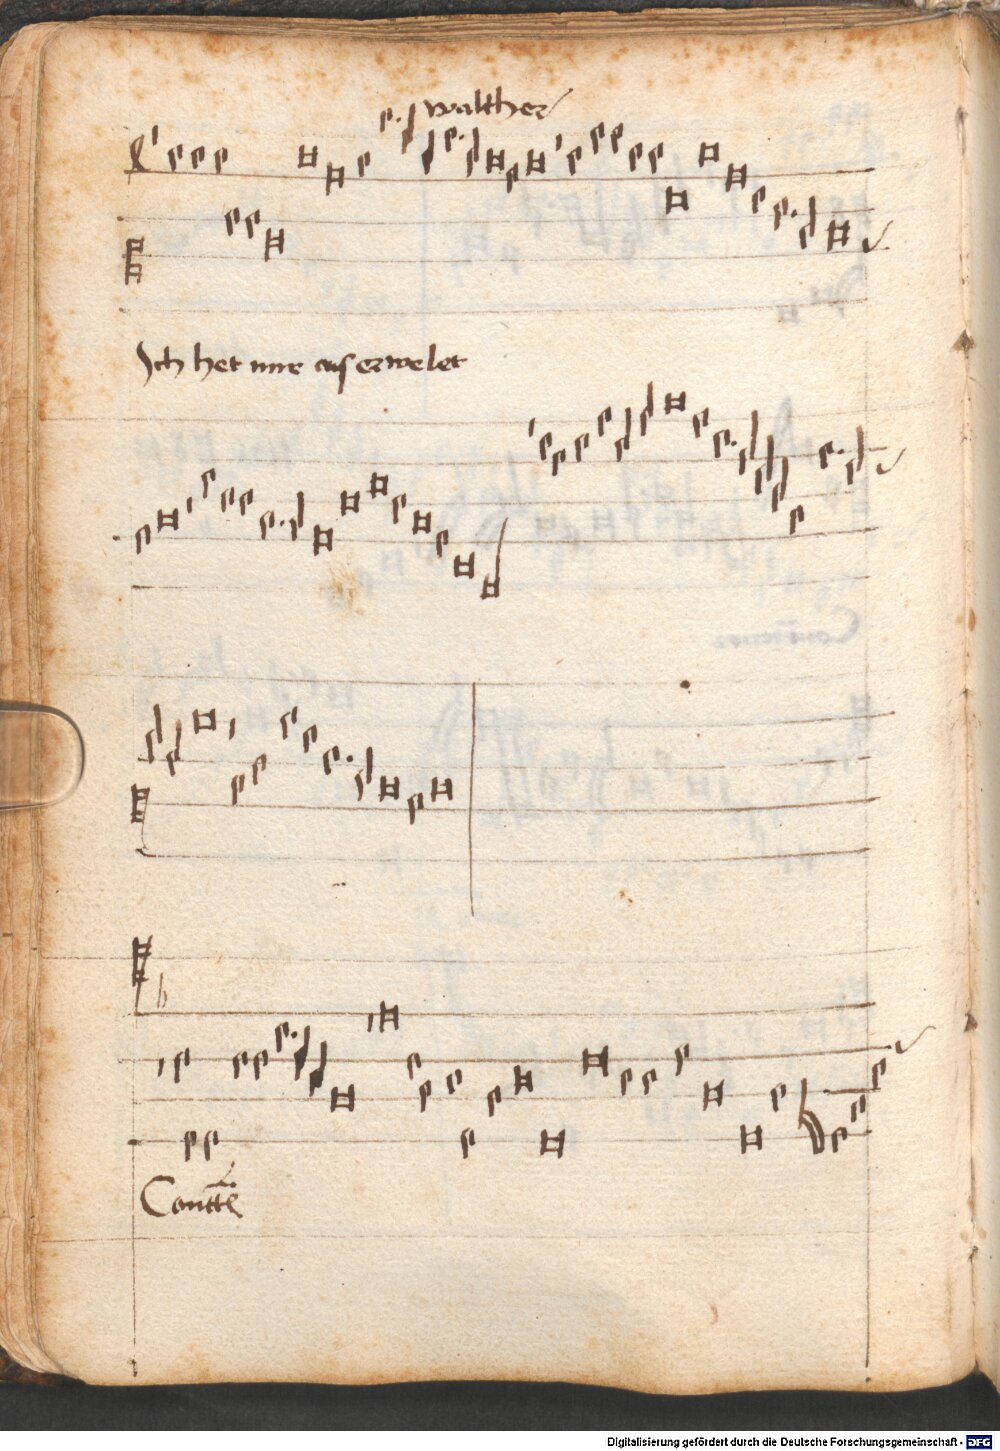 walther
Ich het mir auserwelet
Digitalisierung gefördert durch die Deutsche Forschungsgemeinschaft - DFG